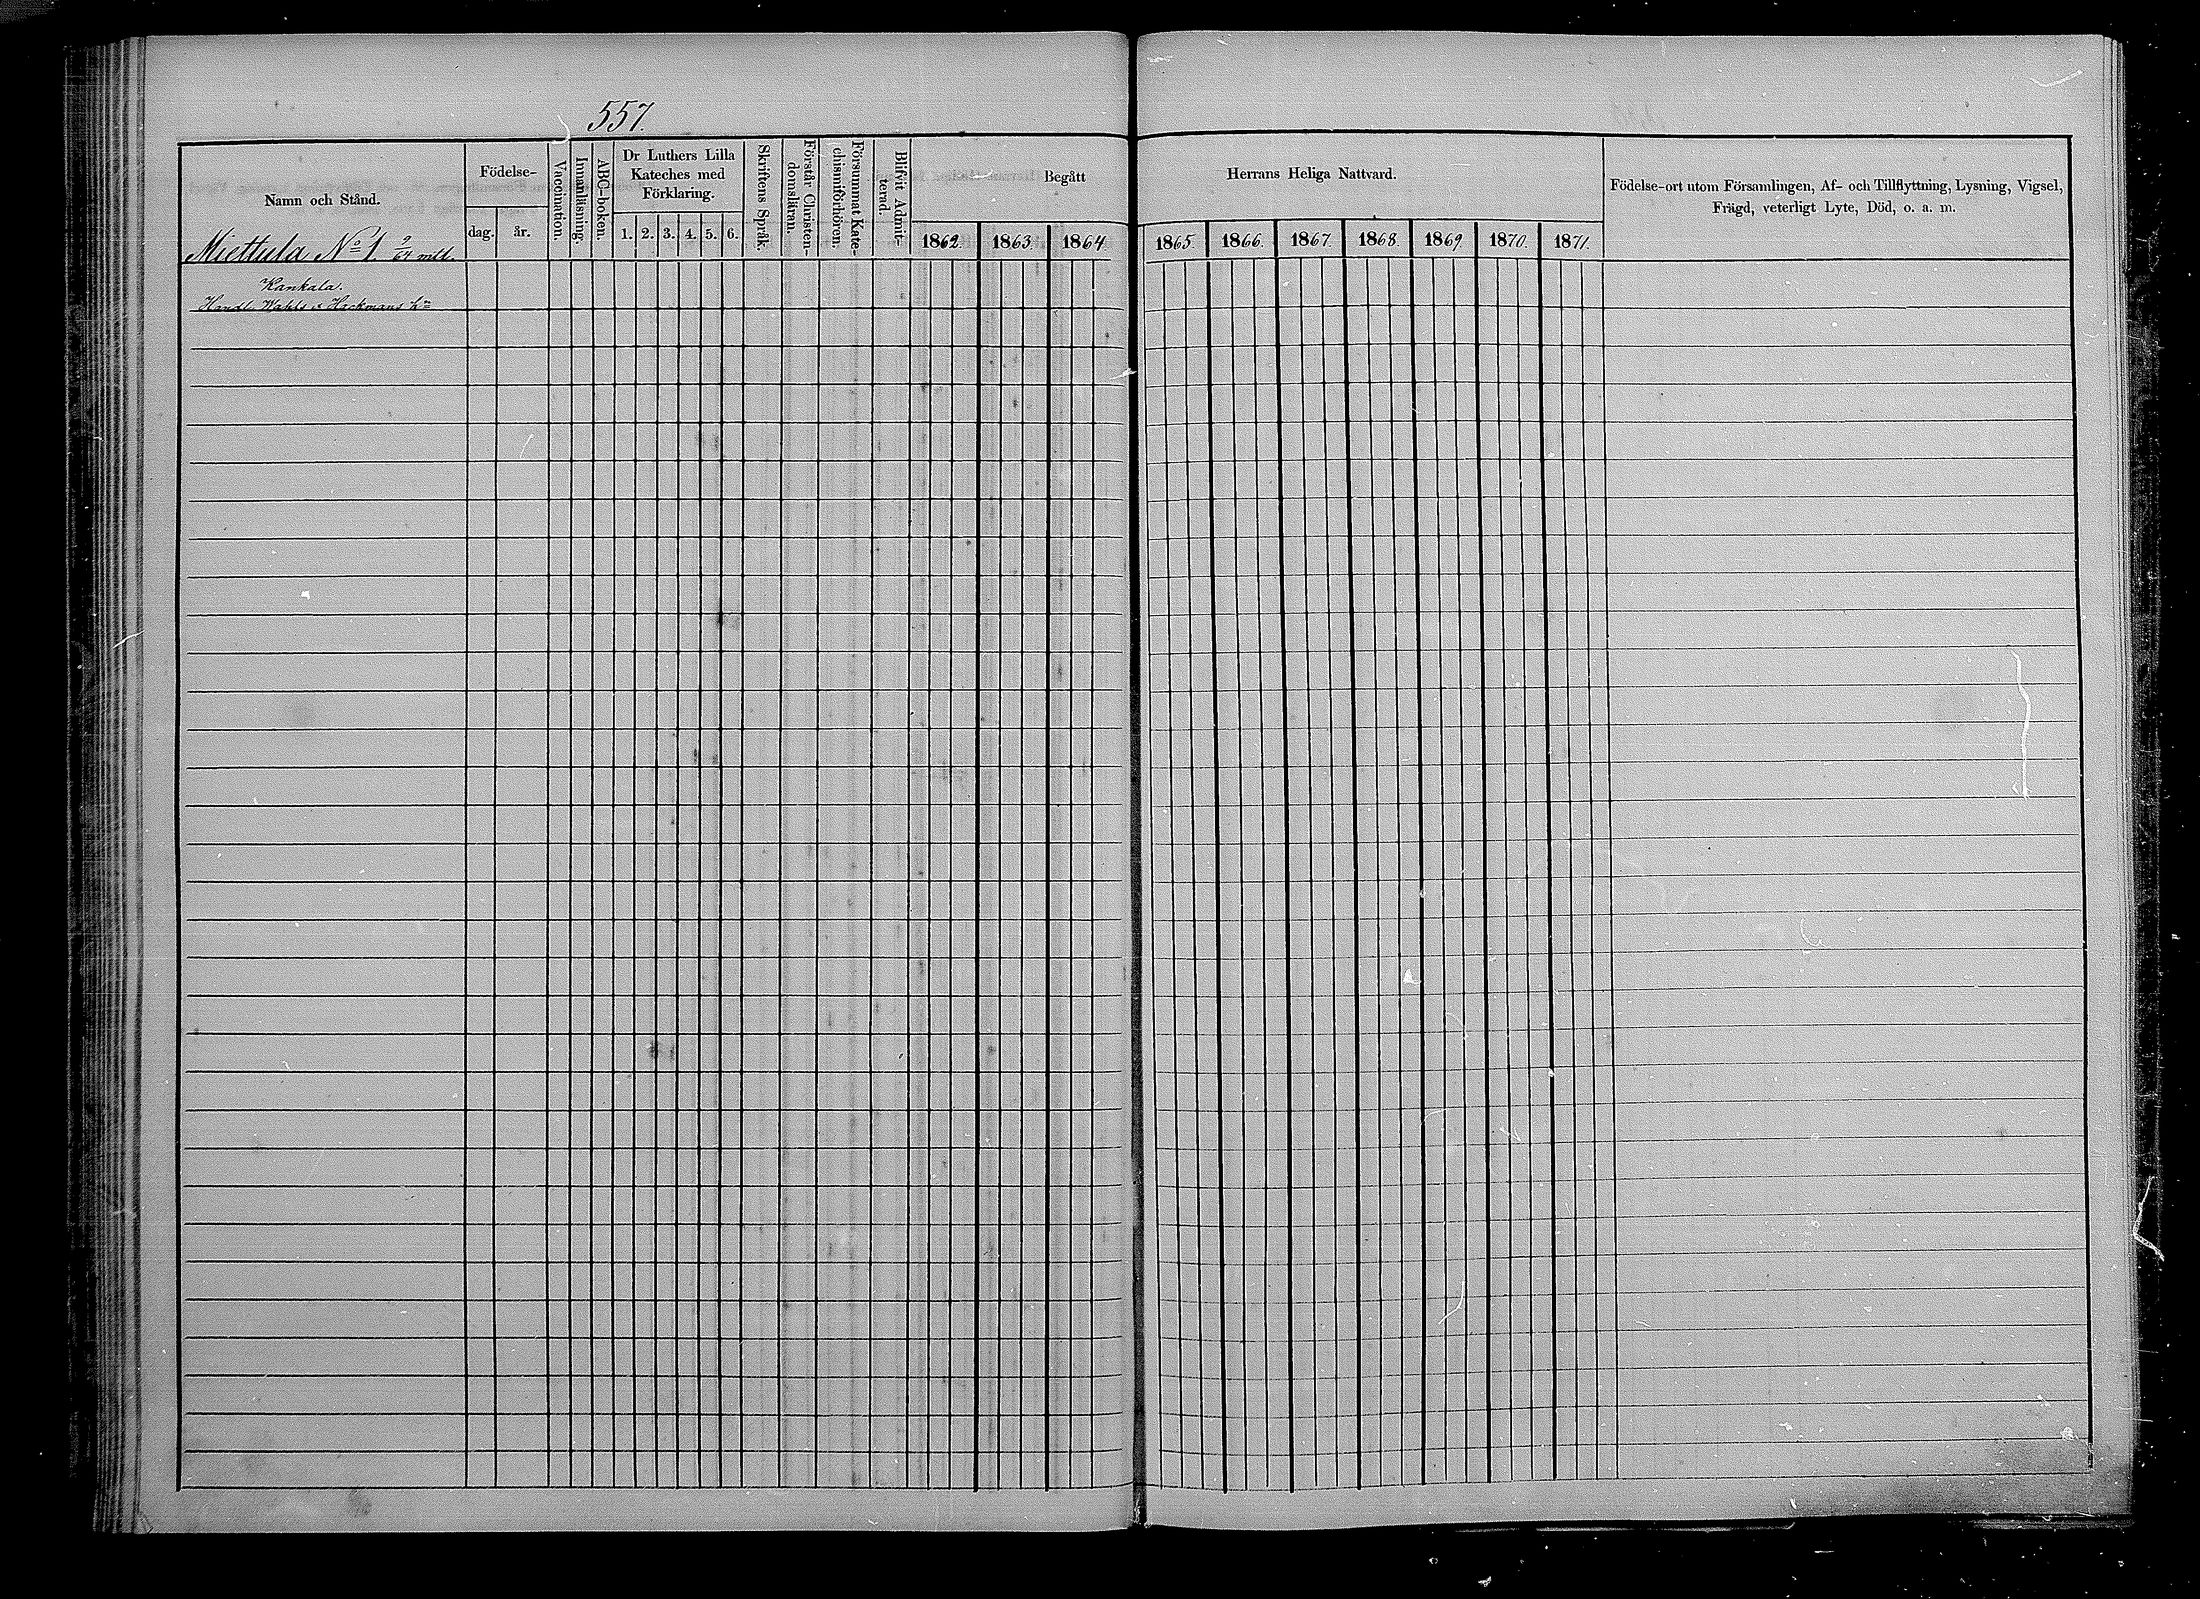 557.
Namn och Stånd.
Födelse-
dag.
år.
Vaccination.
Innanläsning.
ABC-boken.
Dr Luthers Lilla
Kateches med
Förklaring.
1. 2. 3. 4. 5. 6.
Skriftens Språk.
Förstår Christen-
domsläran.
Försummat Kate-
chismiförhören.
Blifvit Admit-
terad.
Begått
Herrans Heliga Nattvard.
1862. 1863. 1864. 1865. 1866. 1867. 1868. 1869. 1870. 1871.
Födelse-ort utom Församlingen, Af- och Tillflyttning, Lysning, Vigsel,
Frägd, veterligt Lyte, Död, o. a. m.
Miettula No 1 9/64 mtl.
Kankala.
Handl. Wahls o. Hackmans